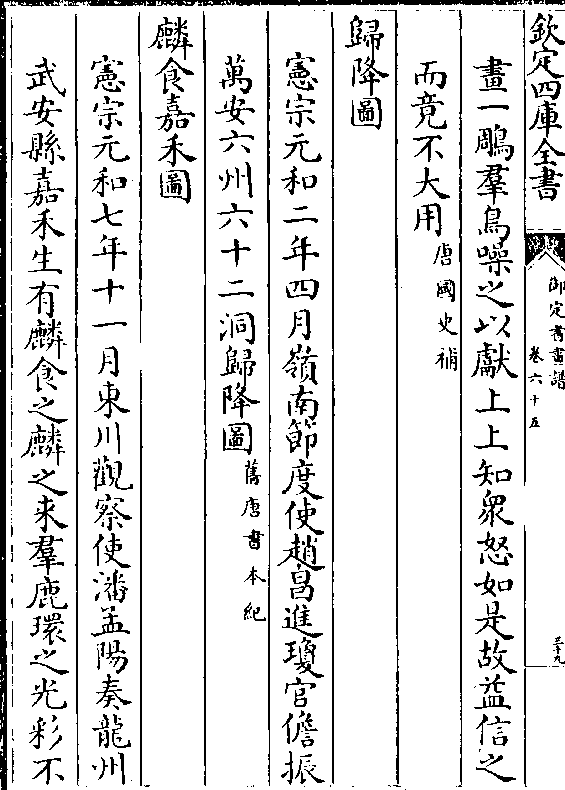 欽定四庫全書
御定書畫譜
卷六十五
三十九
畫一鵰羣鳥噪之以獻上上知衆怒如是故益信之
而竟不大用唐國史補
歸降圖
憲宗元和二年四月嶺南節度使趙昌進瓊官儋振
萬安六州六十二洞歸降圖舊唐書本紀
麟食嘉禾圖
憲宗元和七年十一月東川觀察使潘孟陽奏龍州
武安縣嘉禾生有麟食之麟之来羣鹿環之光彩不